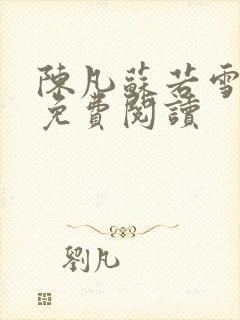 陳凡蘇若雪
免費閱讀
劉凡